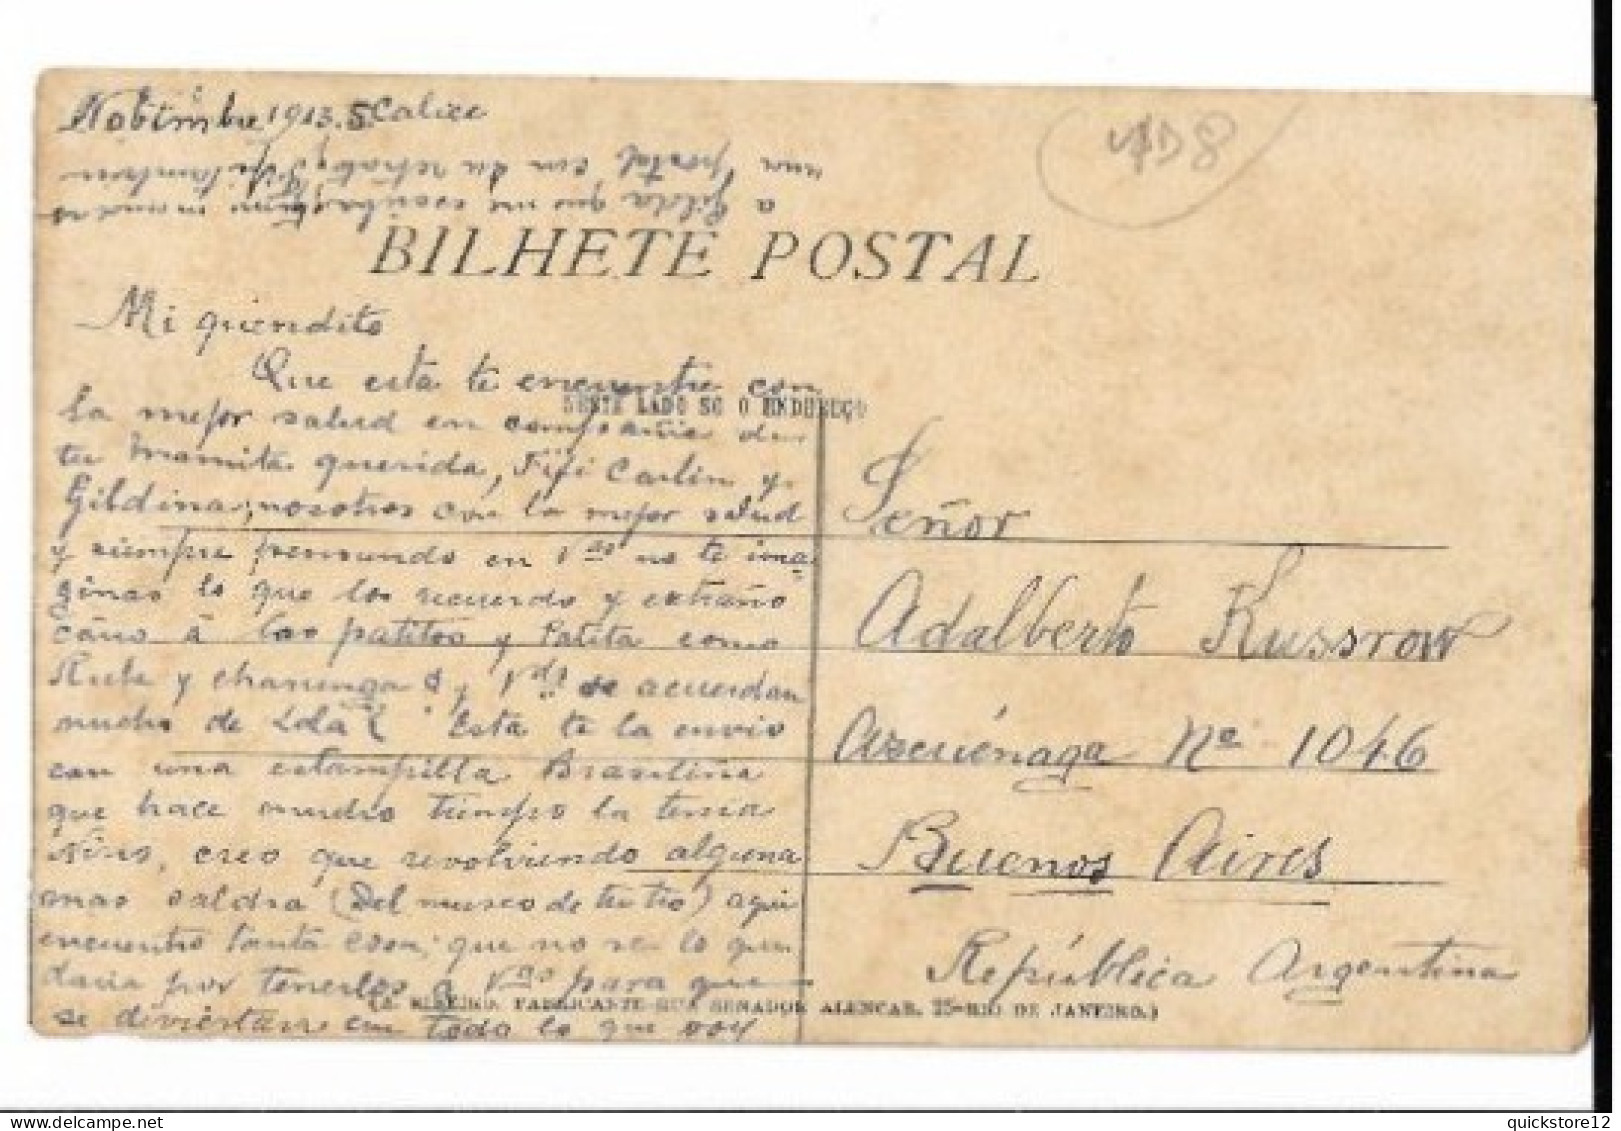 Nobiembre 1913. 5.
a Gilda que me escriba
una postal con su retrato, Fifi tambien
BILHETE POSTAL
498
Mi queridito
Que esta te encuentre con
la mejor salud en compañia de
tu mamita querida, Fifi Carlin y
Gildina, nosotros con la mejor salud
y siempre pensando en Vds no te ima
ginas lo que los recuerdo y extraño
como á los patitos y Patita como
y Vds se acuerdan
mucho de Lola? Esta te la envio
con una estampilla Brasileña
que hace mucho tiempo la tenia
Nino, creo que revolviendo alguna
mas saldra (Del museo de tu tio) aqui
encuentro tanta cosa, que no se lo que
daria por tenerlos á Vds para que
se diviertan con todo lo que voy
NESTE LADO SÓ O ENDEREÇO
Señor
Adalberto Kussrow
Azcuénaga Nº 1046
Buenos Aires
República Argentina
(A. RIBEIRO. FABRICANTE-RUA SENADOR ALENCAR, 25-RIO DE JANEIRO.)
quickstore12